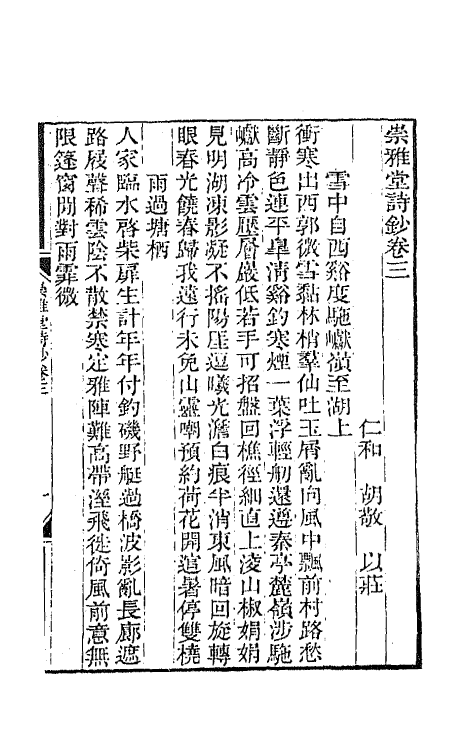 崇雅堂詩鈔卷三
仁和 胡敬 以莊
雪中自西谿度駞巘嶺至湖上
衝寒出西郭微雪黏林梢羣仙吐玉屑亂向風中飄前村路愁
斷靜色連平臯清谿釣寒煙一葉浮輕舠還遵秦亭麓嶺涉駞
巘高冷雲壓層巖低若手可招盤回樵徑細直上淩山椒娟娟
見明湖凍影凝不搖陽厓逗曦光澹白痕半消東風暗回旋轉
眼春光饒春歸我遠行未免山靈嘲預約荷花開逭暑停雙橈
雨過塘栖
人家臨水啓柴扉生計年年付釣磯野艇過橋波影亂長廊遮
路屐聲稀雲陰不散禁寒定雅陣難高帶溼飛徙倚風前意無
限篷窗閒對雨霏微
崇雅堂詩鈔卷三